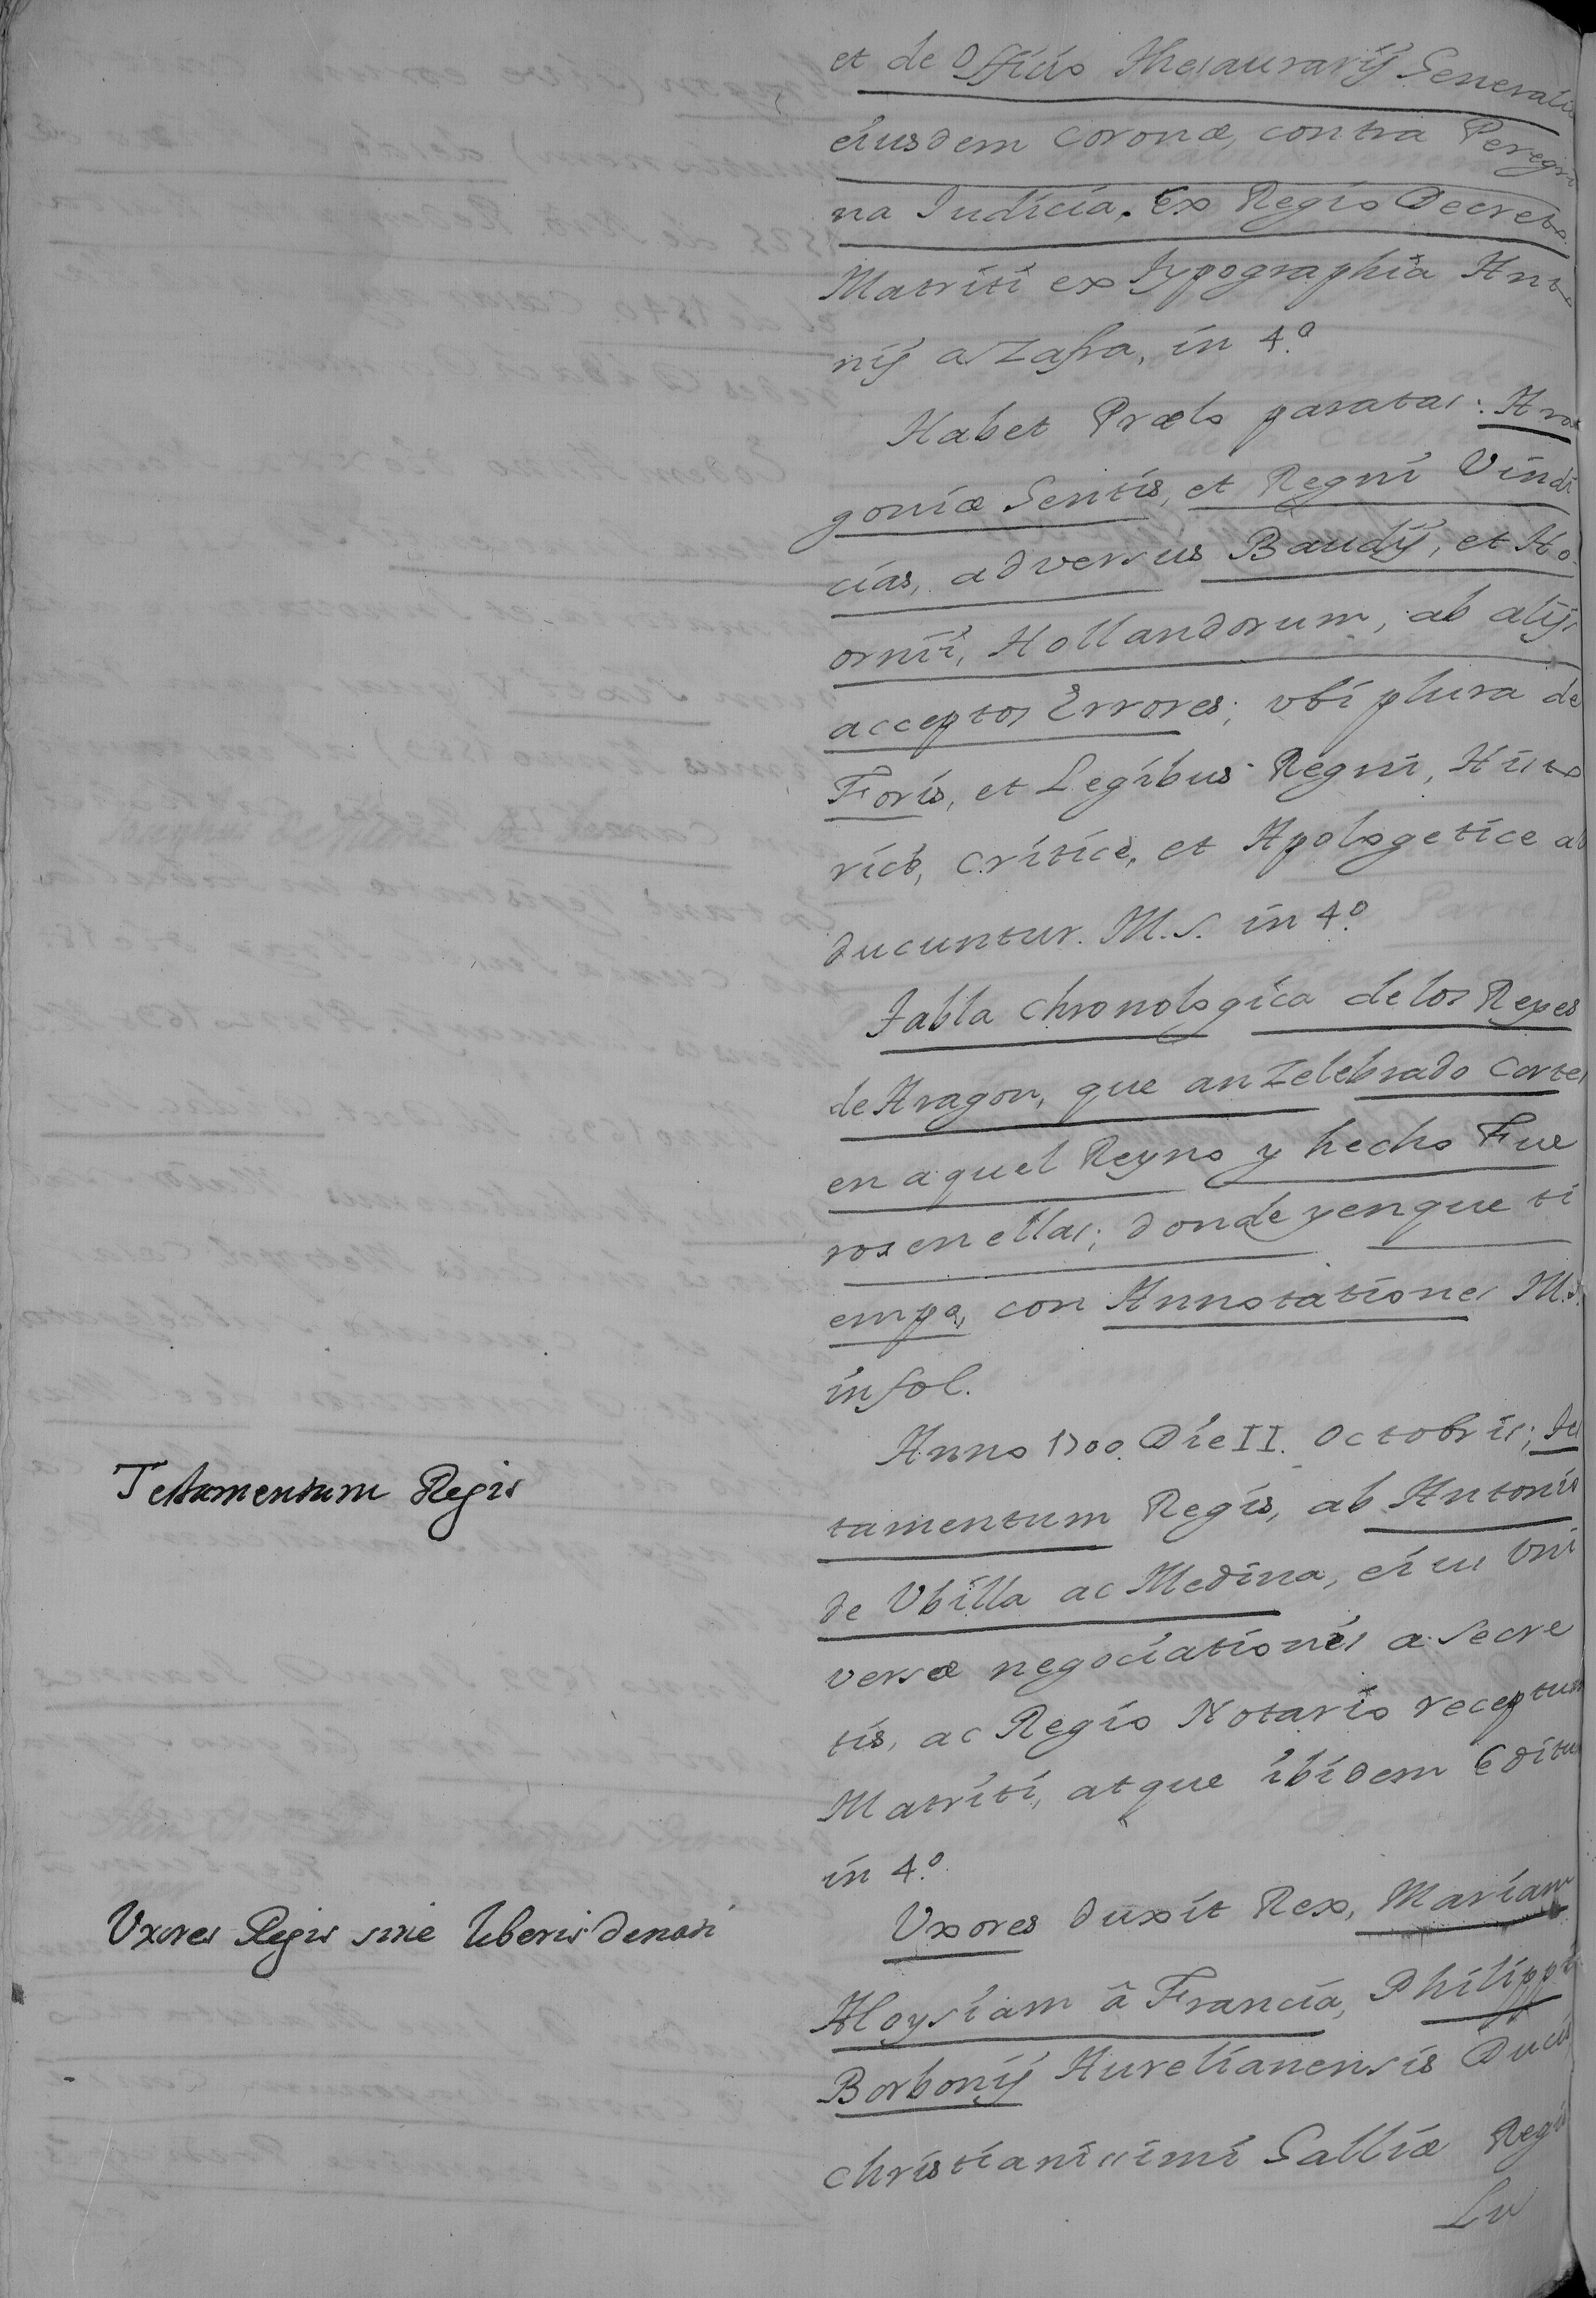 et de Officio Thesaurarij Generalis
eiusdem coronæ, contra Peregri
na Iudicia. Ex Regio Decreto.
Matriti ex Typographia Anto
nij a Zafra, in 4.º
Habet Prælo paratas: Ara
goniæ Gentis, et Regni Vindi
cias, adversus Baudij, et Ho
ornii, Hollandorum, ab alijs
acceptos Errores; vbi plura de
Foris, et Legibus Regni, Histo
ricè, criticè, et Apologetice ad
ducuntur. M.S. in 4.º
Tabla chronologica de los Reyes
de Aragon, que an Zelebrado Cortes
en aquel Reyno y hecho Fue
ros en ellas; donde y en que ti
empo, con Annotationes M.S.
in fol.
Anno 1700. Die II. Octobris; Tes
Testamentum Regis
tamentum Regis, ab Antonio
de Vbilla ac Medina, eius Vni
versæ negociationis a Secre
tis, ac Regio Notario receptum
Matriti, atque ibidem Editum
in 4.º
Vxores Regis sine liberis
Vxores duxit Rex, Mariam
Aloysiam â Francia, Philippi
Borbonij Aurelianensis Ducis
christianissimi Galliæ Regis
Lu